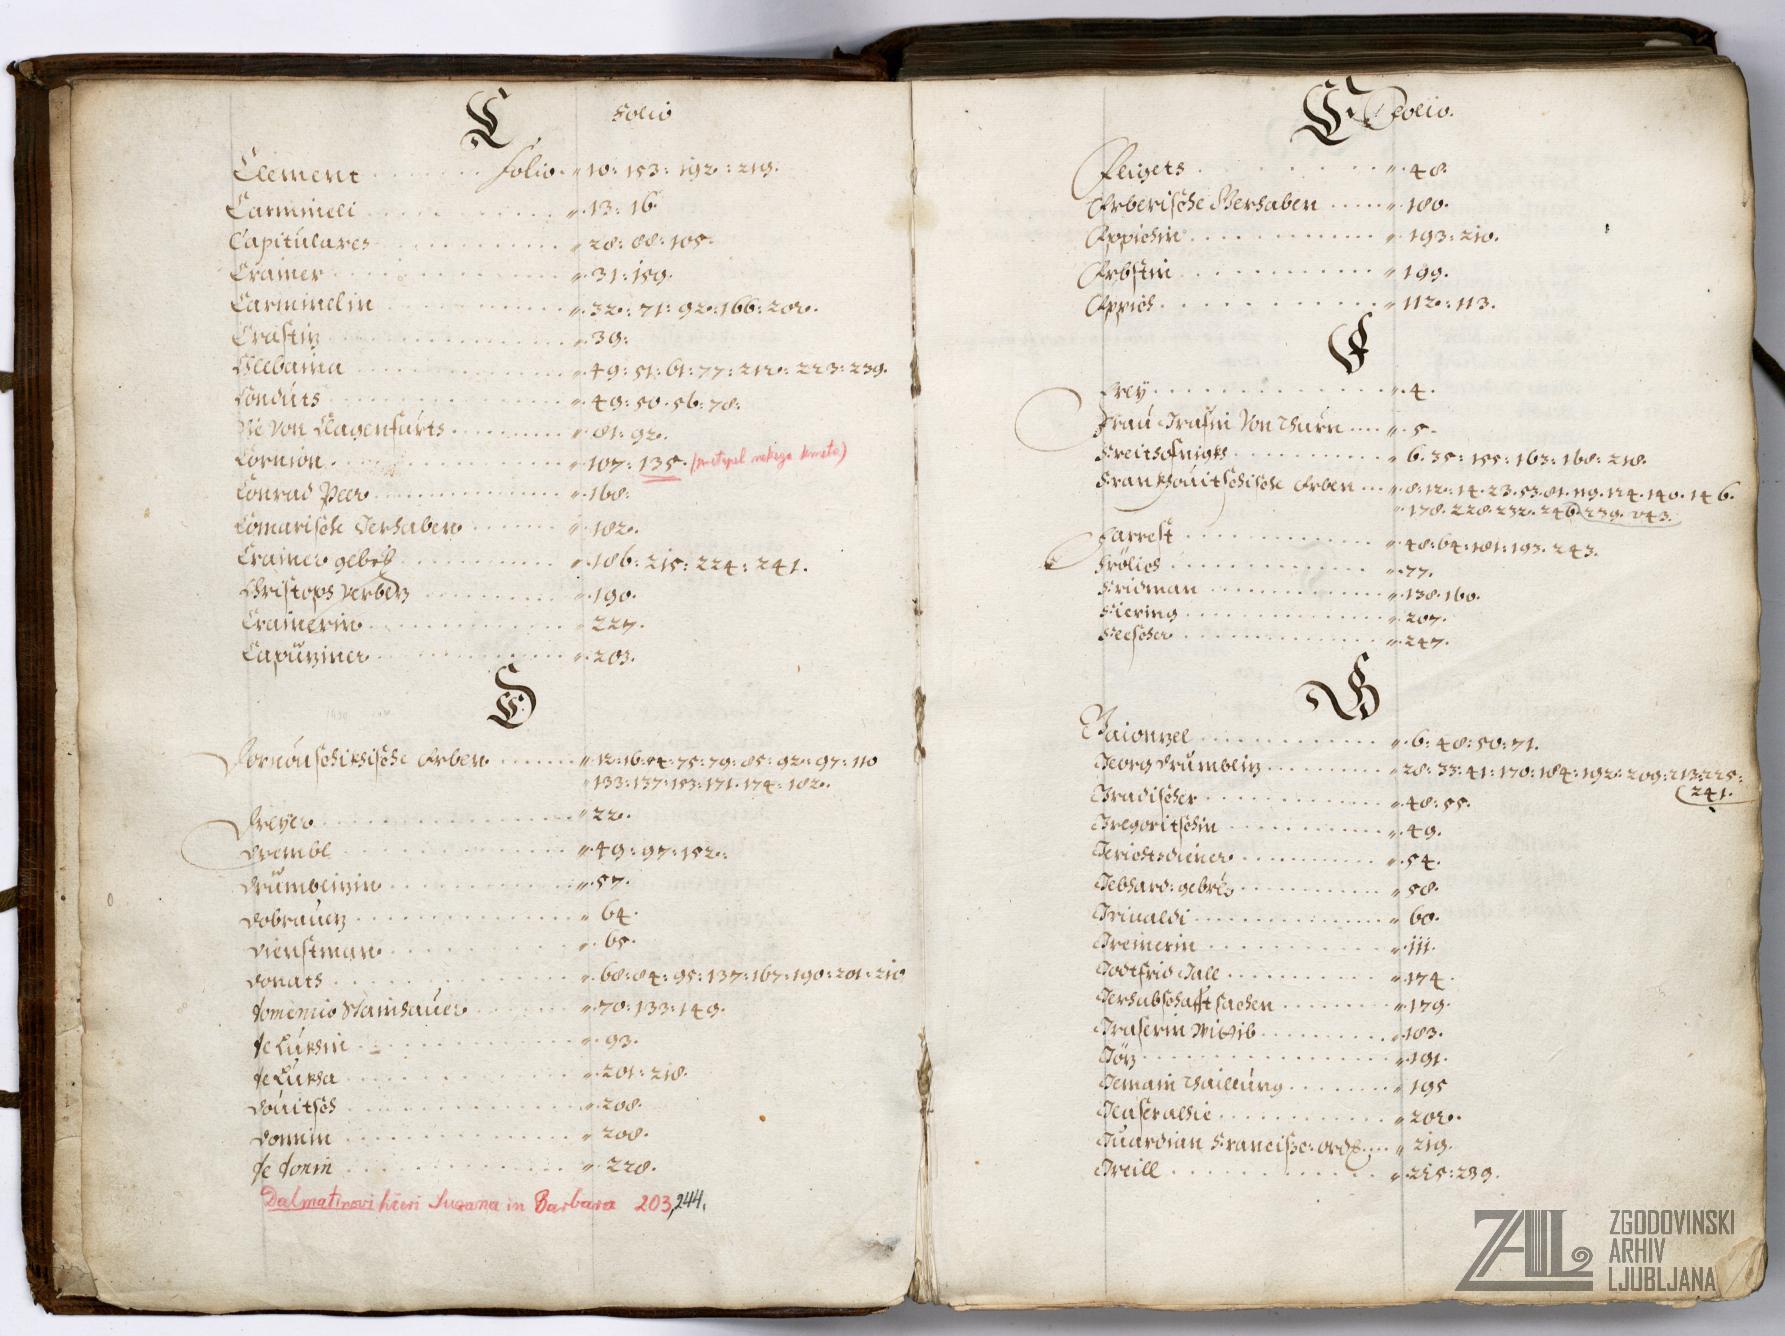 C Folio
Clement folio 10: 153: 192: 219.
Carmineli 13: 16.
Capitulares 28: 88: 105.
Crainer 31: 159.
Carminelin 32: 71: 92: 166: 202.
39.
Clebaina 49: 51: 61: 77: 212: 223: 239.
Conduts 49: 50: 56: 78:
Die Von Clagenfurts 81: 92.
Cornion 107: 135. (pretepel nekega kmeta)
Conrad Peer 168:
Comarische Gerhaben 182.
Crainer gebrüd 186: 215: 224: 241.
Christoph Verbez 190.
Crainerin 227.
Capuziner 203.
D
Dornouschikische Erben 12: 16: 54: 75: 79: 85: 92: 97: 110
133: 137: 153: 171: 174: 182.
Dreyer 22.
Drembl 49: 97: 152:
Drumbleizin 57.
Dobrauez 64.
Dienstman 65.
Donats 68: 84: 95: 137: 167: 190: 201: 210
Domenico Stainhauer 70: 133: 149.
de Lukhin 93.
de Lukha 201: 218.
Douitsch 208.
Donnin 208.
de Donin 228.
Dalmatinovi hčeri Suzana in Barbara 203, 244.
E Folio.
Eeigets 48.
Erberische Gerhaben 180.
Eppichin 193: 210.
Erbstin 199.
Eppich 112: 113.
F
Frey 4.
Frau Grafin Von Thurn 5.
Freitsofnigkh 6. 35: 155: 163: 168: 218.
Frankhouitschische Erben 8. 12. 14. 23. 53. 81. 119. 124. 140. 146.
178. 228. 232. 246. 239. 243.
Farrest 48: 64: 181: 193. 243.
Frölich 77.
Fridman 138. 160.
Fiering 207.
Feescher 247.
G
Gaionzel 6: 48: 50: 71.
Georg Drumbleiz 28: 33: 41: 170: 184: 192: 209: 213: 225:
241.
Gradischer 48: 55.
Gregoritschin 49.
Gerichtsdiener 54.
Gebhard: gebrüd 58.
Grinaldi 60.
Greinerin 111.
Gottfrid Gall 174
Gerhabschafft sachen 179.
Graserin Wittib 183.
Göz 191.
Gemain Thaillung 195
202.
Guardian Francisc: ord: 219.
Greill 215: 239.
ZAL
ZGODOVINSKI
ARHIV
LJUBLJANA